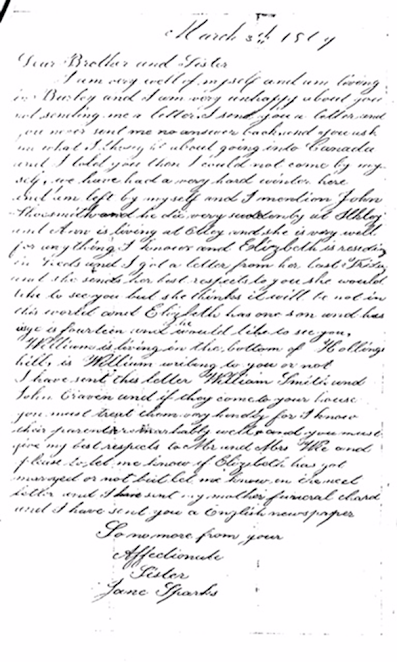 March 3th 18
Dear Brother and Sister
I am very well of myself and am living
in Burley and I am very unhappy about you
not sending me a letter I sent you a letter and
you never sent me no answer back and you ask
me what I about going into Canada
and I told you then I could not come by my
self, we have had a very hard winter here
and am left by myself and I mention John
and he die very suddenly at
and Ann is living at and she is very well
for anything I know and Elizebeth is residing
in Leeds and I got a letter from her last Friday
and she sends her best respects to you she would
like to see you but she thinks it will be not in
this world and Elizebeth has one son and his
age is fourteen and he would like to see you,
William is living in the bottom of Hollings
hill, is William writing to you or not
I have sent this letter William Smith and
John Craven and if they come to your house
you must treat them very kindly for I know
their parents remarkably well and you must
give my best respects to Mr and Mrs and
please to let me know if Elizebeth has got
married or not but let me know in the next
letter and I have sent my mother funeral card
and I have sent you a English newspaper
So no more from your
Affectionate
Sister
Jane Sparks